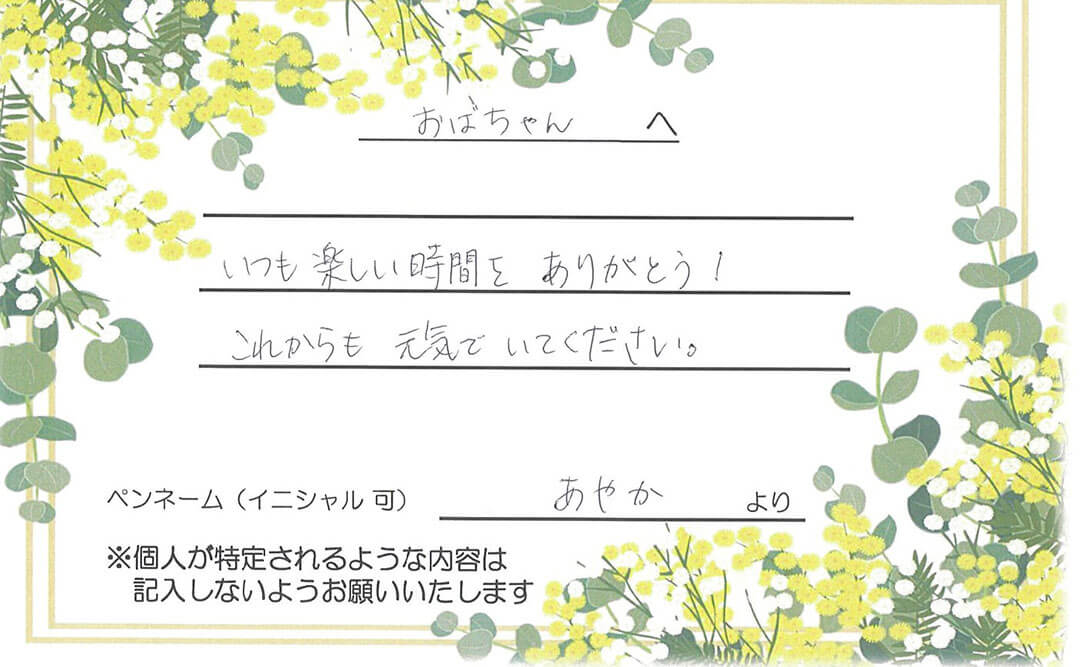 おばちゃん へ
いつも楽しい時間を ありがとう!
これからも 元気で いてください。
ペンネーム（イニシャル 可） あやか より
※個人が特定されるような内容は
記入しないようお願いいたします